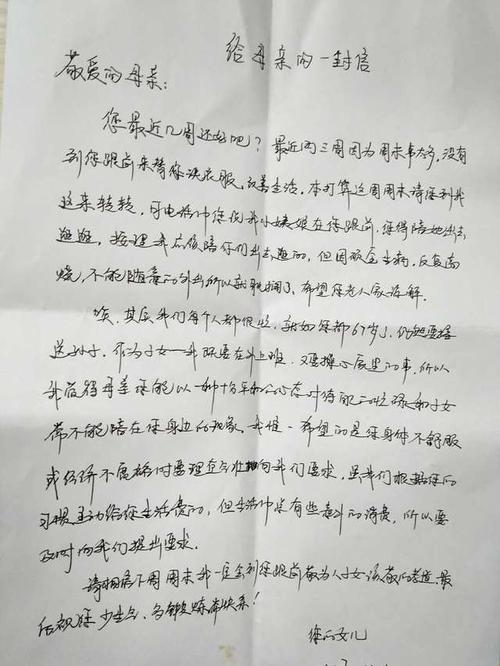 给母亲的一封信
敬爱的母亲:
您最近几周还好吧?最近两三周因为周末事太多,没有
到您跟前来替你洗衣服,改善生活。本打算这周周末请您到我
这来转转,可电话中您说我小姨娘在您跟前,您得陪她出去
逛逛,按理我应该陪你们出去逛的,但因 生病,反复高
烧,不能随意的外出所以就耽搁了,希望您老人家谅解。
唉,其实我们每个人都很 ,就如您都67岁了,仍然要接
送孙子。作为子女——我既要在外上班,又要操心家里的事,所以
我值得母亲您能以一种十分平和的心态对待 忙碌和子女
常不能陪在您身边的现象。我惟一希望的是您身体不舒服
或经济不宽裕时要理直气壮的向我们要求,虽我们根据您的
习惯主动给您生活费的,但生活中总有些意外的消费,所以要
及时向我们提出要求。
请相信不 周周末我一定会到您跟前敬为人子女该敬的孝道,最
后祝您少生气、多锻炼 !
您的女儿